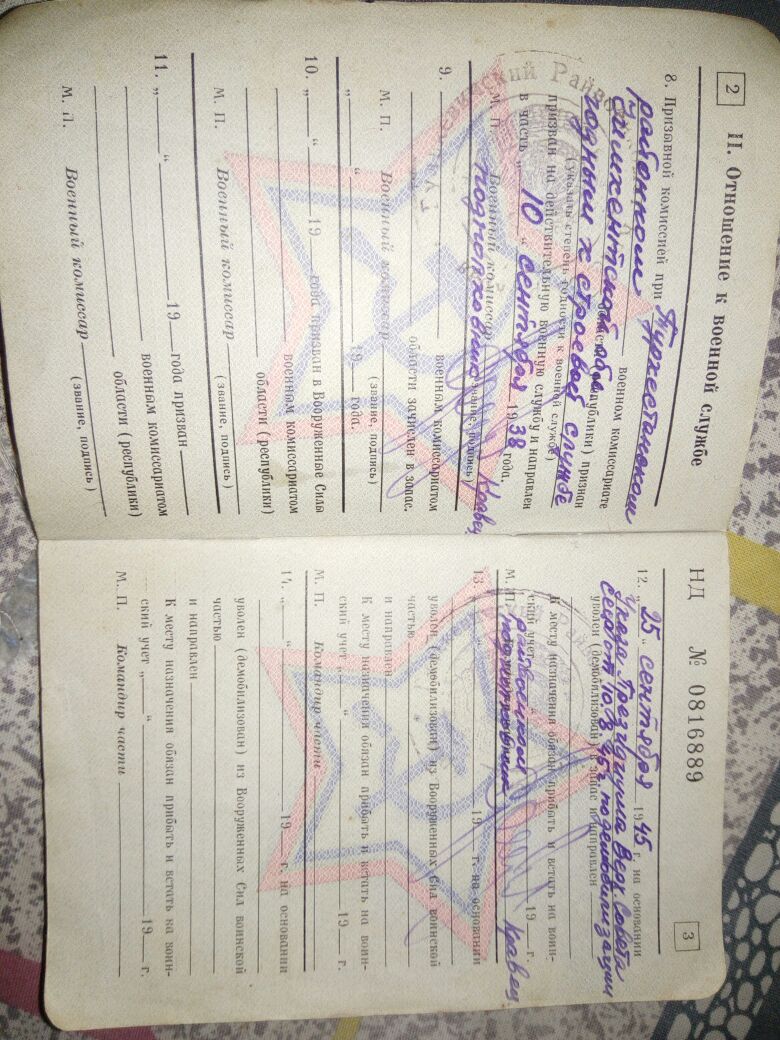 2
II. Отношение к военной службе
8. Призывной комиссией при Туркестанском
районном военном комиссариате
Чимкентской обл области (республики) признан
годным к строевой службе
(указать степень годности к военной службе)
призван на действительную военную службу и направлен
в часть „ 10 “ сентября 19 38 года.
М. П. Военный комиссар
подполковник Кравец
(звание, подпись)
9. военным комиссариатом
области зачислен в запас.
„ “ 19 года.
М. П. Военный комиссар
(звание, подпись)
10. „ “ 19 года призван в Вооруженные Силы
военным комиссариатом
области (республики)
М. П. Военный комиссар
(звание, подпись)
11. „ “ 19 года призван
военным комиссариатом
области (республики)
М. П. Военный комиссар
(звание, подпись)
НД № 0816889
3
12. „ 25 “ сентября 19 45 г. на основании
Указа Президиума Верх. Совета
уволен (демобилизован) в запас и направлен
по демобилизации
К месту назначения обязан прибыть и встать на воин-
ский учет „ “ 19 г.
М. П. райвоенком
подполковник Кравец
13. „ “ 19 г. на основании
уволен (демобилизован) из Вооруженных Сил воинской
частью
и направлен
К месту назначения обязан прибыть и встать на воин-
ский учет „ “ 19 г.
М. П. Командир части
14. „ “ 19 г. на основании
уволен (демобилизован) из Вооруженных Сил воинской
частью
и направлен
К месту назначения обязан прибыть и встать на воин-
ский учет „ “ 19 г.
М. П. Командир части